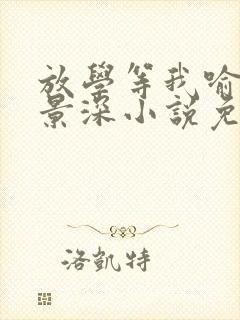 放學等我喻
景深小說免
洛凱特